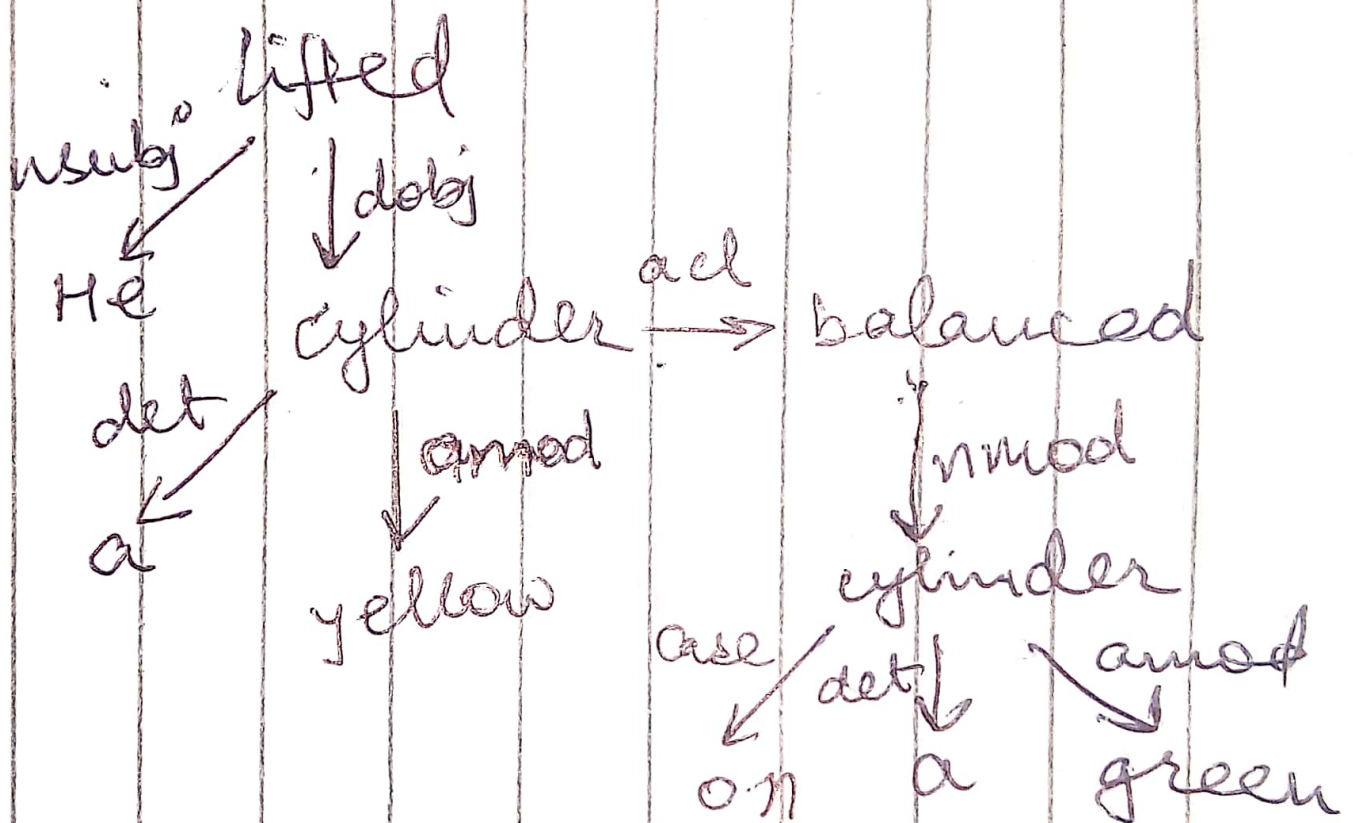 lifted
nsubj
dobj
He
acl
cylinder
balanced
det
amod
nmod
a
yellow
cylinder
case
det
amod
on
a
green